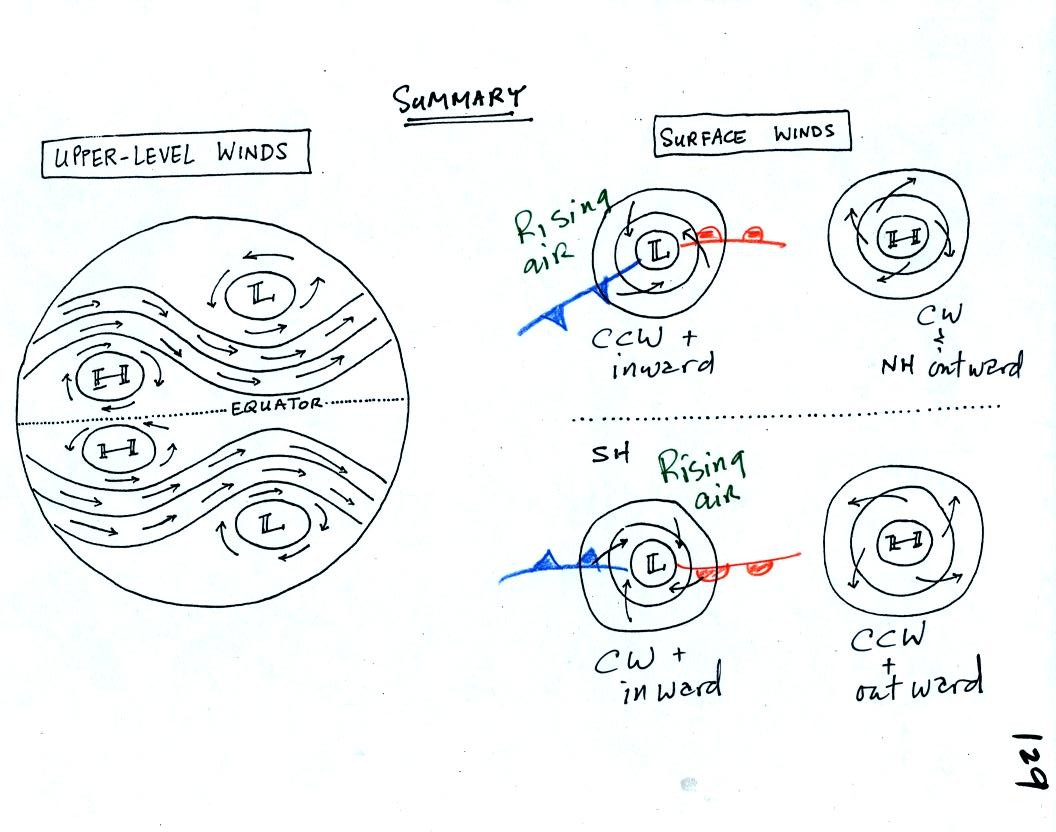 SUMMARY
UPPER-LEVEL WINDS
L
H
EQUATOR
H
L
SURFACE WINDS
Rising
air
L
CCW +
inward
H
CW
&
NH outward
SH
Rising
air
L
CW +
inward
H
CCW
+
outward
129